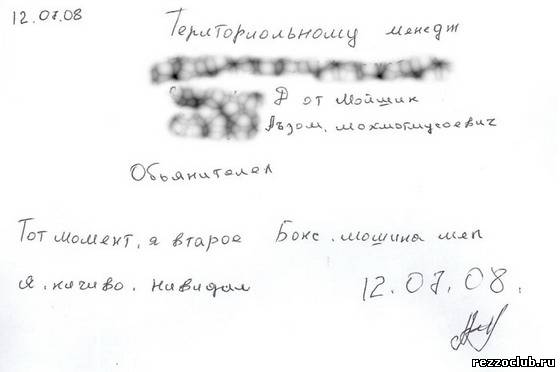 12.07.08
Териториольному менедж
Д от Мойщик
Аъзом, мохмотмусоевич
Обьянителел
Тот момент, я второе Бокс. мошина меп
я. ничиво. навидал
12.07.08.
rezzoclub.ru